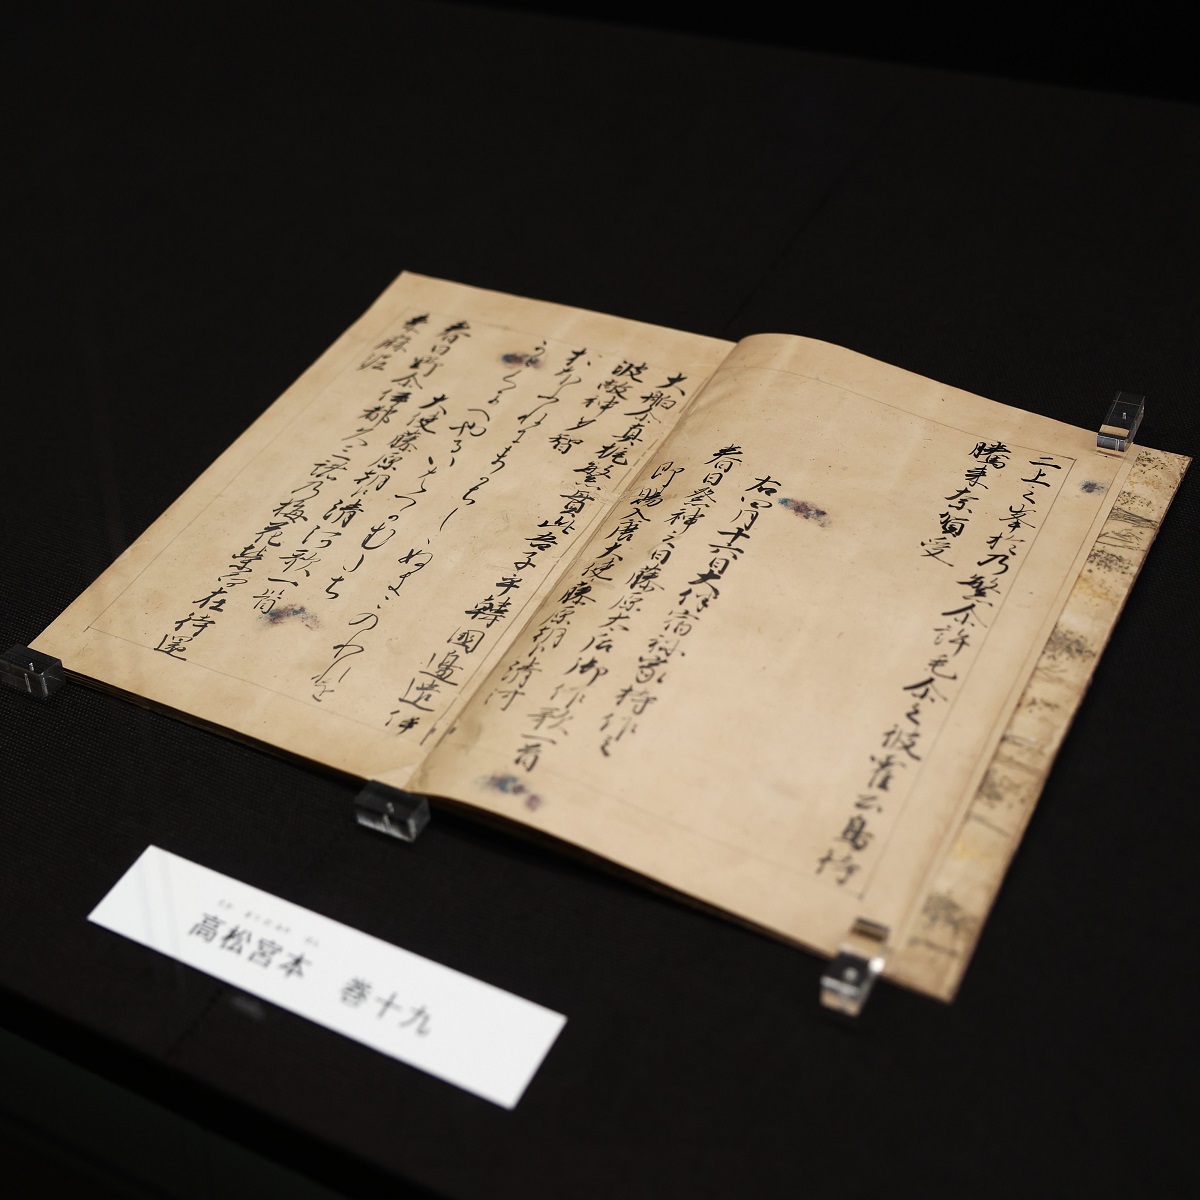 二上之峯於乃繁尓許毛尓之彼霍公鳥待
騰来奈賀受
右四月十六日大伴宿祢家持作之
春日祭神之日藤原太后御作歌一首
即賜入唐大使藤原朝臣清河
大船尓真梶繁貫此吾子乎韓國邊遣伊
波敝神多智
おほふねにまかちしゝぬきこのわこを
からくにへやるいはへかみたち
大使藤原朝臣清河歌一首
春日野尓伊都久三諸乃梅花榮而在待還
来麻泥
高松宮本 巻十九